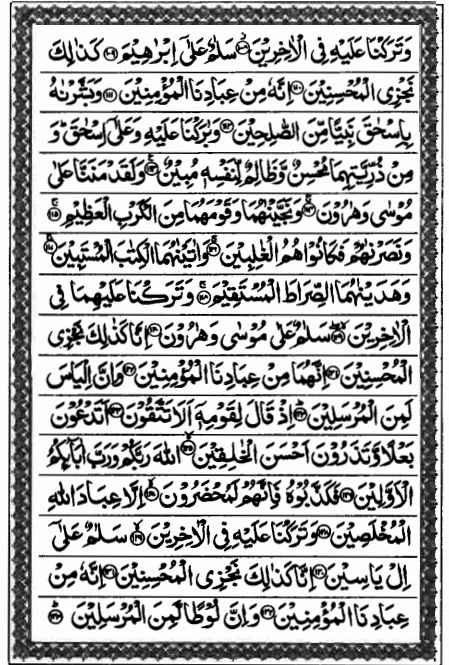 وَتَرَكْنَا عَلَيْهِ فِي الْاٰخِرِيْنَ ﴿۱۰۸﴾ سَلٰمٌ عَلٰٓى اِبْرٰهِيْمَ ﴿۱۰۹﴾ كَذٰلِكَ
نَجْزِى الْمُحْسِنِيْنَ ﴿۱۱۰﴾ اِنَّهٗ مِنْ عِبَادِنَا الْمُؤْمِنِيْنَ ﴿۱۱۱﴾ وَبَشَّرْنٰهُ
بِاِسْحٰقَ نَبِيًّا مِّنَ الصّٰلِحِيْنَ ﴿۱۱۲﴾ وَبٰرَكْنَا عَلَيْهِ وَعَلٰٓى اِسْحٰقَ ؕ وَ
مِنْ ذُرِّيَّتِهِمَا مُحْسِنٌ وَّظَالِمٌ لِّنَفْسِهٖ مُبِيْنٌ ﴿۱۱۳﴾ وَلَقَدْ مَنَنَّا عَلٰى
مُوْسٰى وَهٰرُوْنَ ﴿۱۱۴﴾ وَنَجَّيْنٰهُمَا وَقَوْمَهُمَا مِنَ الْكَرْبِ الْعَظِيْمِ ﴿۱۱۵﴾
وَنَصَرْنٰهُمْ فَكَانُوْا هُمُ الْغٰلِبِيْنَ ﴿۱۱۶﴾ وَاٰتَيْنٰهُمَا الْكِتٰبَ الْمُسْتَبِيْنَ ﴿۱۱۷﴾
وَهَدَيْنٰهُمَا الصِّرَاطَ الْمُسْتَقِيْمَ ﴿۱۱۸﴾ وَتَرَكْنَا عَلَيْهِمَا فِى
الْاٰخِرِيْنَ ﴿۱۱۹﴾ سَلٰمٌ عَلٰى مُوْسٰى وَهٰرُوْنَ ﴿۱۲۰﴾ اِنَّا كَذٰلِكَ نَجْزِى
الْمُحْسِنِيْنَ ﴿۱۲۱﴾ اِنَّهُمَا مِنْ عِبَادِنَا الْمُؤْمِنِيْنَ ﴿۱۲۲﴾ وَاِنَّ اِلْيَاسَ
لَمِنَ الْمُرْسَلِيْنَ ﴿۱۲۳﴾ اِذْ قَالَ لِقَوْمِهٖٓ اَلَا تَتَّقُوْنَ ﴿۱۲۴﴾ اَتَدْعُوْنَ
بَعْلًا وَّتَذَرُوْنَ اَحْسَنَ الْخٰلِقِيْنَ ﴿۱۲۵﴾ اللّٰهَ رَبَّكُمْ وَرَبَّ اٰبَآئِكُمُ
الْاَوَّلِيْنَ ﴿۱۲۶﴾ فَكَذَّبُوْهُ فَاِنَّهُمْ لَمُحْضَرُوْنَ ﴿۱۲۷﴾ اِلَّا عِبَادَ اللّٰهِ
الْمُخْلَصِيْنَ ﴿۱۲۸﴾ وَتَرَكْنَا عَلَيْهِ فِى الْاٰخِرِيْنَ ﴿۱۲۹﴾ سَلٰمٌ عَلٰٓى
اِلْ يَاسِيْنَ ﴿۱۳۰﴾ اِنَّا كَذٰلِكَ نَجْزِى الْمُحْسِنِيْنَ ﴿۱۳۱﴾ اِنَّهٗ مِنْ
عِبَادِنَا الْمُؤْمِنِيْنَ ﴿۱۳۲﴾ وَاِنَّ لُوْطًا لَّمِنَ الْمُرْسَلِيْنَ ﴿۱۳۳﴾